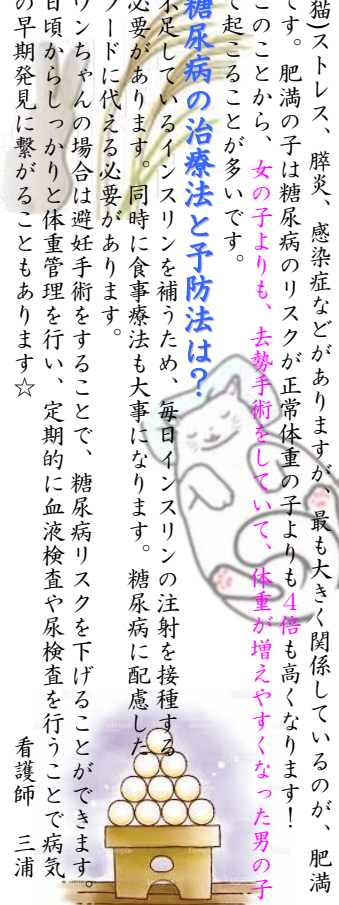 猫)ストレス、膵炎、感染症などがありますが、最も大きく関係しているのが、肥満
です。肥満の子は糖尿病のリスクが正常体重の子よりも4倍も高くなります!
このことから、女の子よりも、去勢手術をしていて、体重が増えやすくなった男の子
て起こることが多いです。
糖尿病の治療法と予防法は?
不足しているインスリンを補うため、毎日インスリンの注射を接種する
必要があります。同時に食事療法も大事になります。糖尿病に配慮した
フードに代える必要があります。
ワンちゃんの場合は避妊手術をすることで、糖尿病リスクを下げることができます。
日頃からしっかりと体重管理を行い、定期的に血液検査や尿検査を行うことで病気
の早期発見に繋がることもあります☆
看護師 三浦